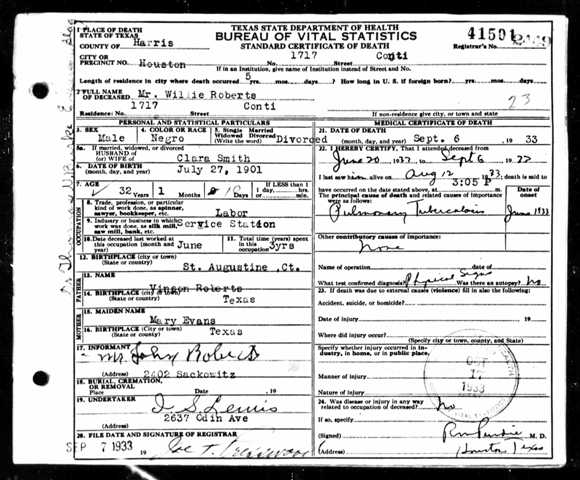 TEXAS STATE DEPARTMENT OF HEALTH
BUREAU OF VITAL STATISTICS
STANDARD CERTIFICATE OF DEATH
1 PLACE OF DEATH
STATE OF TEXAS
COUNTY OF Harris
41501
Registrar's No.
CITY OR
PRECINCT NO. Houston
1717 Conti
Street
If in an Institution, give name of Institution instead of Street and No.
Length of residence in city where death occurred 5 yrs. mos. days? How long in U. S. if foreign born? yrs. mos. days.
2 FULL NAME
OF DECEASED Mr. Willie Roberts
23
Residence: No. 1717 Street Conti
If non-resident, give city, or town and state
PERSONAL AND STATISTICAL PARTICULARS
3. SEX Male
4. COLOR OR RACE Negro
5. Single Married
Widowed Divorced
(Write the word) Divorced
5a. If married, widowed, or divorced
HUSBAND OF
(or) WIFE OF Clara Smith
6. DATE OF BIRTH
(month, day, and year) July 27, 1901
7. AGE 32 YEARS 1 Months 10 Days
If LESS than 1
day, hrs.
or min.
OCCUPATION
8. Trade, profession, or particular
kind of work done, as spinner,
sawyer, bookkeeper, etc. Labor
9. Industry or business in which
work was done, as silk mill,
saw mill, bank, etc. Service Station
10. Date deceased last worked at
this occupation (month and
year) June
11. Total time (years) spent
in this
occupation 3yrs
12. BIRTHPLACE (city or town)
(State or country) St. Augustine ,Ct.
FATHER
13. NAME Vinson Roberts
14. BIRTHPLACE (City or town)
(State or country) Texas
MOTHER
15. MAIDEN NAME Mary Evans
16. BIRTHPLACE (City or town)
(State or country) Texas
17. INFORMANT Mr. John Roberts
(Address) 2402 Sackowitz
18. BURIAL, CREMATION,
OR REMOVAL
Place Date , 19
19. UNDERTAKER I S Lewis
(Address) 2637 Odin Ave
20. FILE DATE AND SIGNATURE OF REGISTRAR
SEP 7 1933 19
MEDICAL CERTIFICATE OF DEATH
21. DATE OF DEATH
(month, day, and year) Sept. 6 , 19 33
22. I HEREBY CERTIFY, That I attended deceased from
June 20 1933 to Sept 6 19 33
I last saw him alive on Aug 12 1933, death is said to
have occurred on the date stated above, at 3:05 P m.
The principal cause of death and related causes of importance
were as follows:
Date of onset
Pulmonary Tuberculosis June 1933
Other contributory causes of importance:
None
Name of operation date of
What test confirmed diagnosis? Physical Signs Was there an autopsy? No
23. If death was due to external causes (violence) fill in also the following:
Accident, suicide, or homicide?
Date of injury , 19
Where did injury occur?
(Specify city or town, county, and State)
Specify whether injury occurred in in-
dustry, in home, or in public place.
Manner of injury
Nature of injury
OCT
1933
24. Was disease or injury in any way
related to occupation of deceased? No
If so, specify
(Signed) M. D.
(Address) Houston, Texas